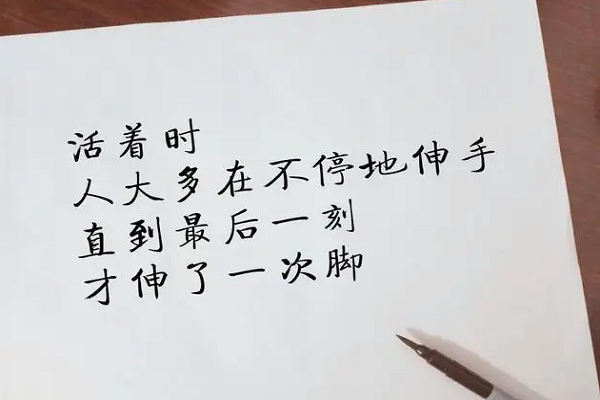 活着时
人大多在不停地伸手
直到最后一刻
才伸了一次脚